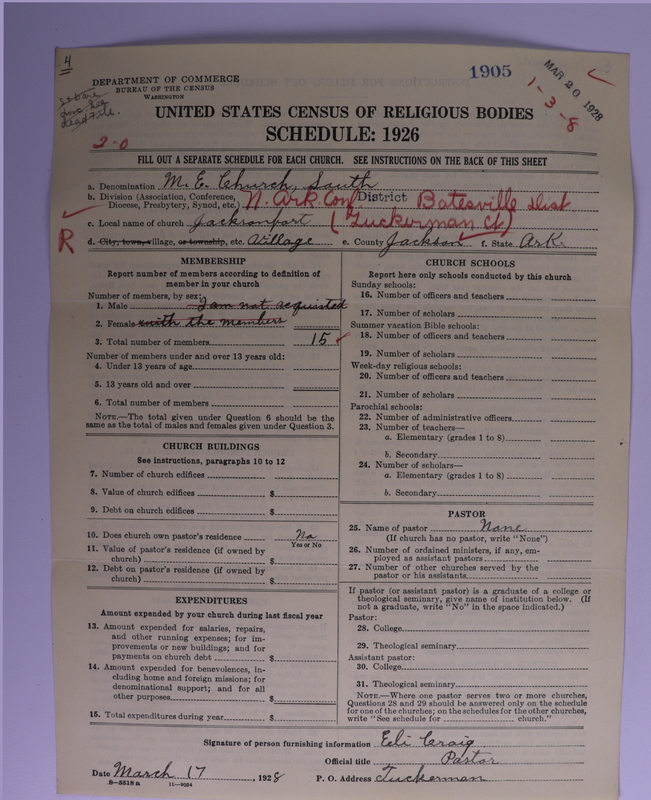 4
1905
MAR 20 1928
1-3-8
DEPARTMENT OF COMMERCE
BUREAU OF THE CENSUS
WASHINGTON
UNITED STATES CENSUS OF RELIGIOUS BODIES
SCHEDULE: 1926
2-0
FILL OUT A SEPARATE SCHEDULE FOR EACH CHURCH. SEE INSTRUCTIONS ON THE BACK OF THIS SHEET
a. Denomination M. E. Church, South
b. Division (Association, Conference, Diocese, Presbytery, Synod, etc.) N. Ark Con District Batesville Dist
c. Local name of church Jacksonport (Tuckerman Ct)
R
d. City, town, village, or township, etc. Village e. County Jackson f. State Ark.
MEMBERSHIP
Report number of members according to definition of
member in your church
Number of members, by sex:
1. Male I am not acquinted
2. Female with the members
3. Total number of members 15
Number of members under and over 13 years old:
4. Under 13 years of age
5. 13 years old and over
6. Total number of members
NOTE.—The total given under Question 6 should be the
same as the total of males and females given under Question 3.
CHURCH BUILDINGS
See instructions, paragraphs 10 to 12
7. Number of church edifices
8. Value of church edifices $
9. Debt on church edifices $
10. Does church own pastor's residence No
Yes or No
11. Value of pastor's residence (if owned by
church) $
12. Debt on pastor's residence (if owned by
church) $
EXPENDITURES
Amount expended by your church during last fiscal year
13. Amount expended for salaries, repairs,
and other running expenses; for im-
provements or new buildings; and for
payments on church debt $
14. Amount expended for benevolences, in-
cluding home and foreign missions; for
denominational support; and for all
other purposes $
15. Total expenditures during year $
CHURCH SCHOOLS
Report here only schools conducted by this church
Sunday schools:
16. Number of officers and teachers
17. Number of scholars
Summer vacation Bible schools:
18. Number of officers and teachers
19. Number of scholars
Week-day religious schools:
20. Number of officers and teachers
21. Number of scholars
Parochial schools:
22. Number of administrative officers
23. Number of teachers—
a. Elementary (grades 1 to 8)
b. Secondary
24. Number of scholars—
a. Elementary (grades 1 to 8)
b. Secondary
PASTOR
25. Name of pastor None
(If church has no pastor, write "None")
26. Number of ordained ministers, if any, em-
ployed as assistant pastors
27. Number of other churches served by the
pastor or his assistants
If pastor (or assistant pastor) is a graduate of a college or
theological seminary, give name of institution below. (If
not a graduate, write "No" in the space indicated.)
Pastor:
28. College
29. Theological seminary
Assistant pastor:
30. College
31. Theological seminary
NOTE.—Where one pastor serves two or more churches,
Questions 28 and 29 should be answered only on the schedule
for one of the churches; on the schedules for the other churches,
write "See schedule for church."
Signature of person furnishing information Eli Craig
Official title Pastor
Date March 17, 1928 P. O. Address Tuckerman
8-5518a 11-9054